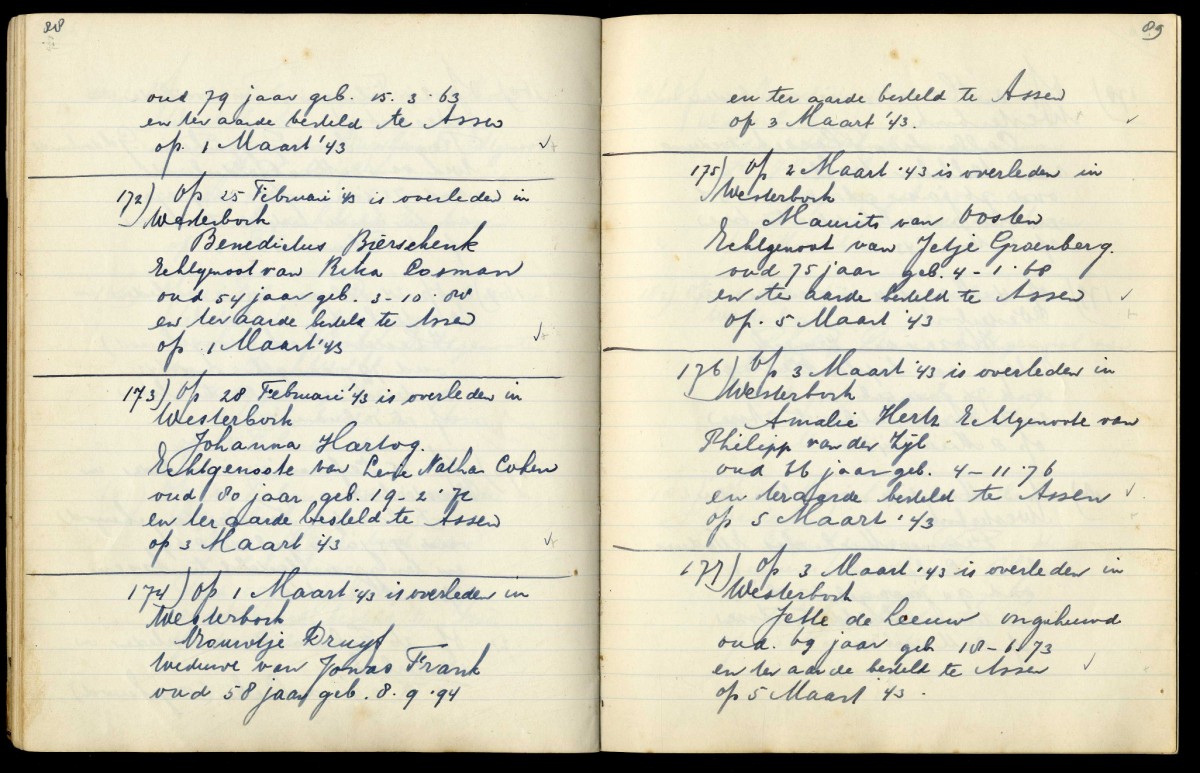 88
oud 79 jaar geb. 15. 3 63
en ter aarde besteld te Assen
op 1 Maart '43
172) Op 25 Februari '43 is overleden in
Westerbork
Benedictus Bierschenk
Echtgenoot van Rika Cosman
oud 54 jaar geb. 3-10.
en ter aarde besteld te Assen
op 1 Maart '43
173) Op 28 Februari '43 is overleden in
Westerbork
Johanna Hartog.
Echtgenoote van Nathan Cohen
oud 80 jaar geb. 19-2.72
en ter aarde besteld te Assen
op 3 Maart '43
174) Op 1 Maart '43 is overleden in
Westerbork
Vrouwtje Druyf
Weduwe van Jonas Frank
oud 58 jaar geb. 8.9.94
89
en ter aarde besteld te Assen
op 3 Maart '43.
175) Op 2 Maart '43 is overleden in
Westerbork
Maurits van Oosten
Echtgenoot van Jetje Groenberg.
oud 75 jaar geb. 4-1.68
en ter aarde besteld te Assen
op. 5 Maart '43
176) Op 3 Maart '43 is overleden in
Westerbork
Amalie Hertz Echtgenoote van
Philipp van der Zyl
oud 66 jaar geb. 4-11.76
en ter aarde besteld te Assen
op 5 Maart '43
177) Op 3 Maart '43 is overleden in
Westerbork
Jette de Leeuw ongehuwd
oud. 69 jaar geb 18-6.73
en ter aarde besteld te Assen
op 5 Maart '43.